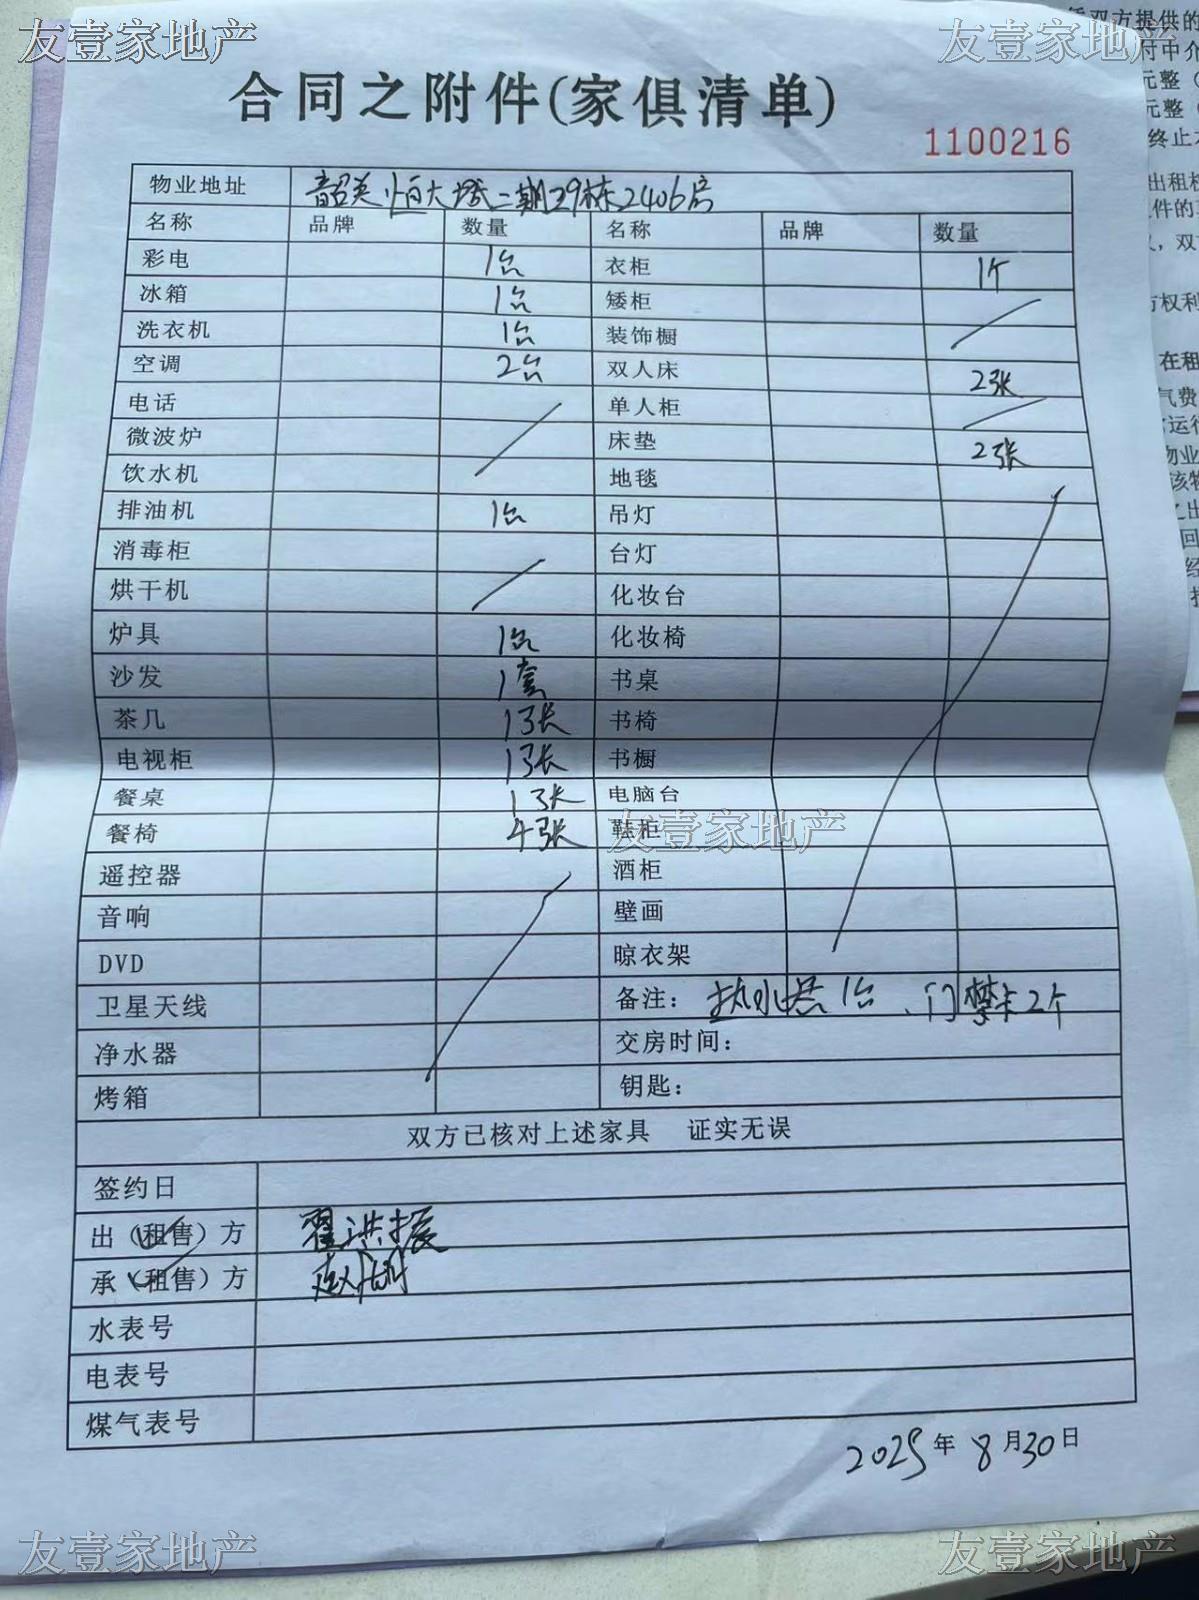 友壹家地产 友壹家地产
合同之附件(家俱清单)
1100216
物业地址 韶关恒大城二期39栋2406房
名称 品牌 数量 名称 品牌 数量
彩电 1台 衣柜 1个
冰箱 1台 矮柜
洗衣机 1台 装饰橱
空调 2台 双人床 2张
电话 单人柜
微波炉 床垫 2张
饮水机 地毯
排油机 1台 吊灯
消毒柜 台灯
烘干机 化妆台
炉具 1台 化妆椅
沙发 1套 书桌
茶几 1张 书椅
电视柜 1张 书橱
餐桌 1张 电脑台
餐椅 4张 鞋柜
友壹家地产
遥控器 酒柜
音响 壁画
DVD 晾衣架
卫星天线 备注: 热水器1台、门禁卡2个
净水器 交房时间:
烤箱 钥匙:
双方已核对上述家具 证实无误
签约日
出(租售)方 翟洪振
承(租售)方
水表号
电表号
煤气表号
2025年8月30日
友壹家地产 友壹家地产
双方提供的
付中介
元整(
元整(
终止
出租
件的
双
方权利
在租
气费
运行
物业
该物
之出
回
经